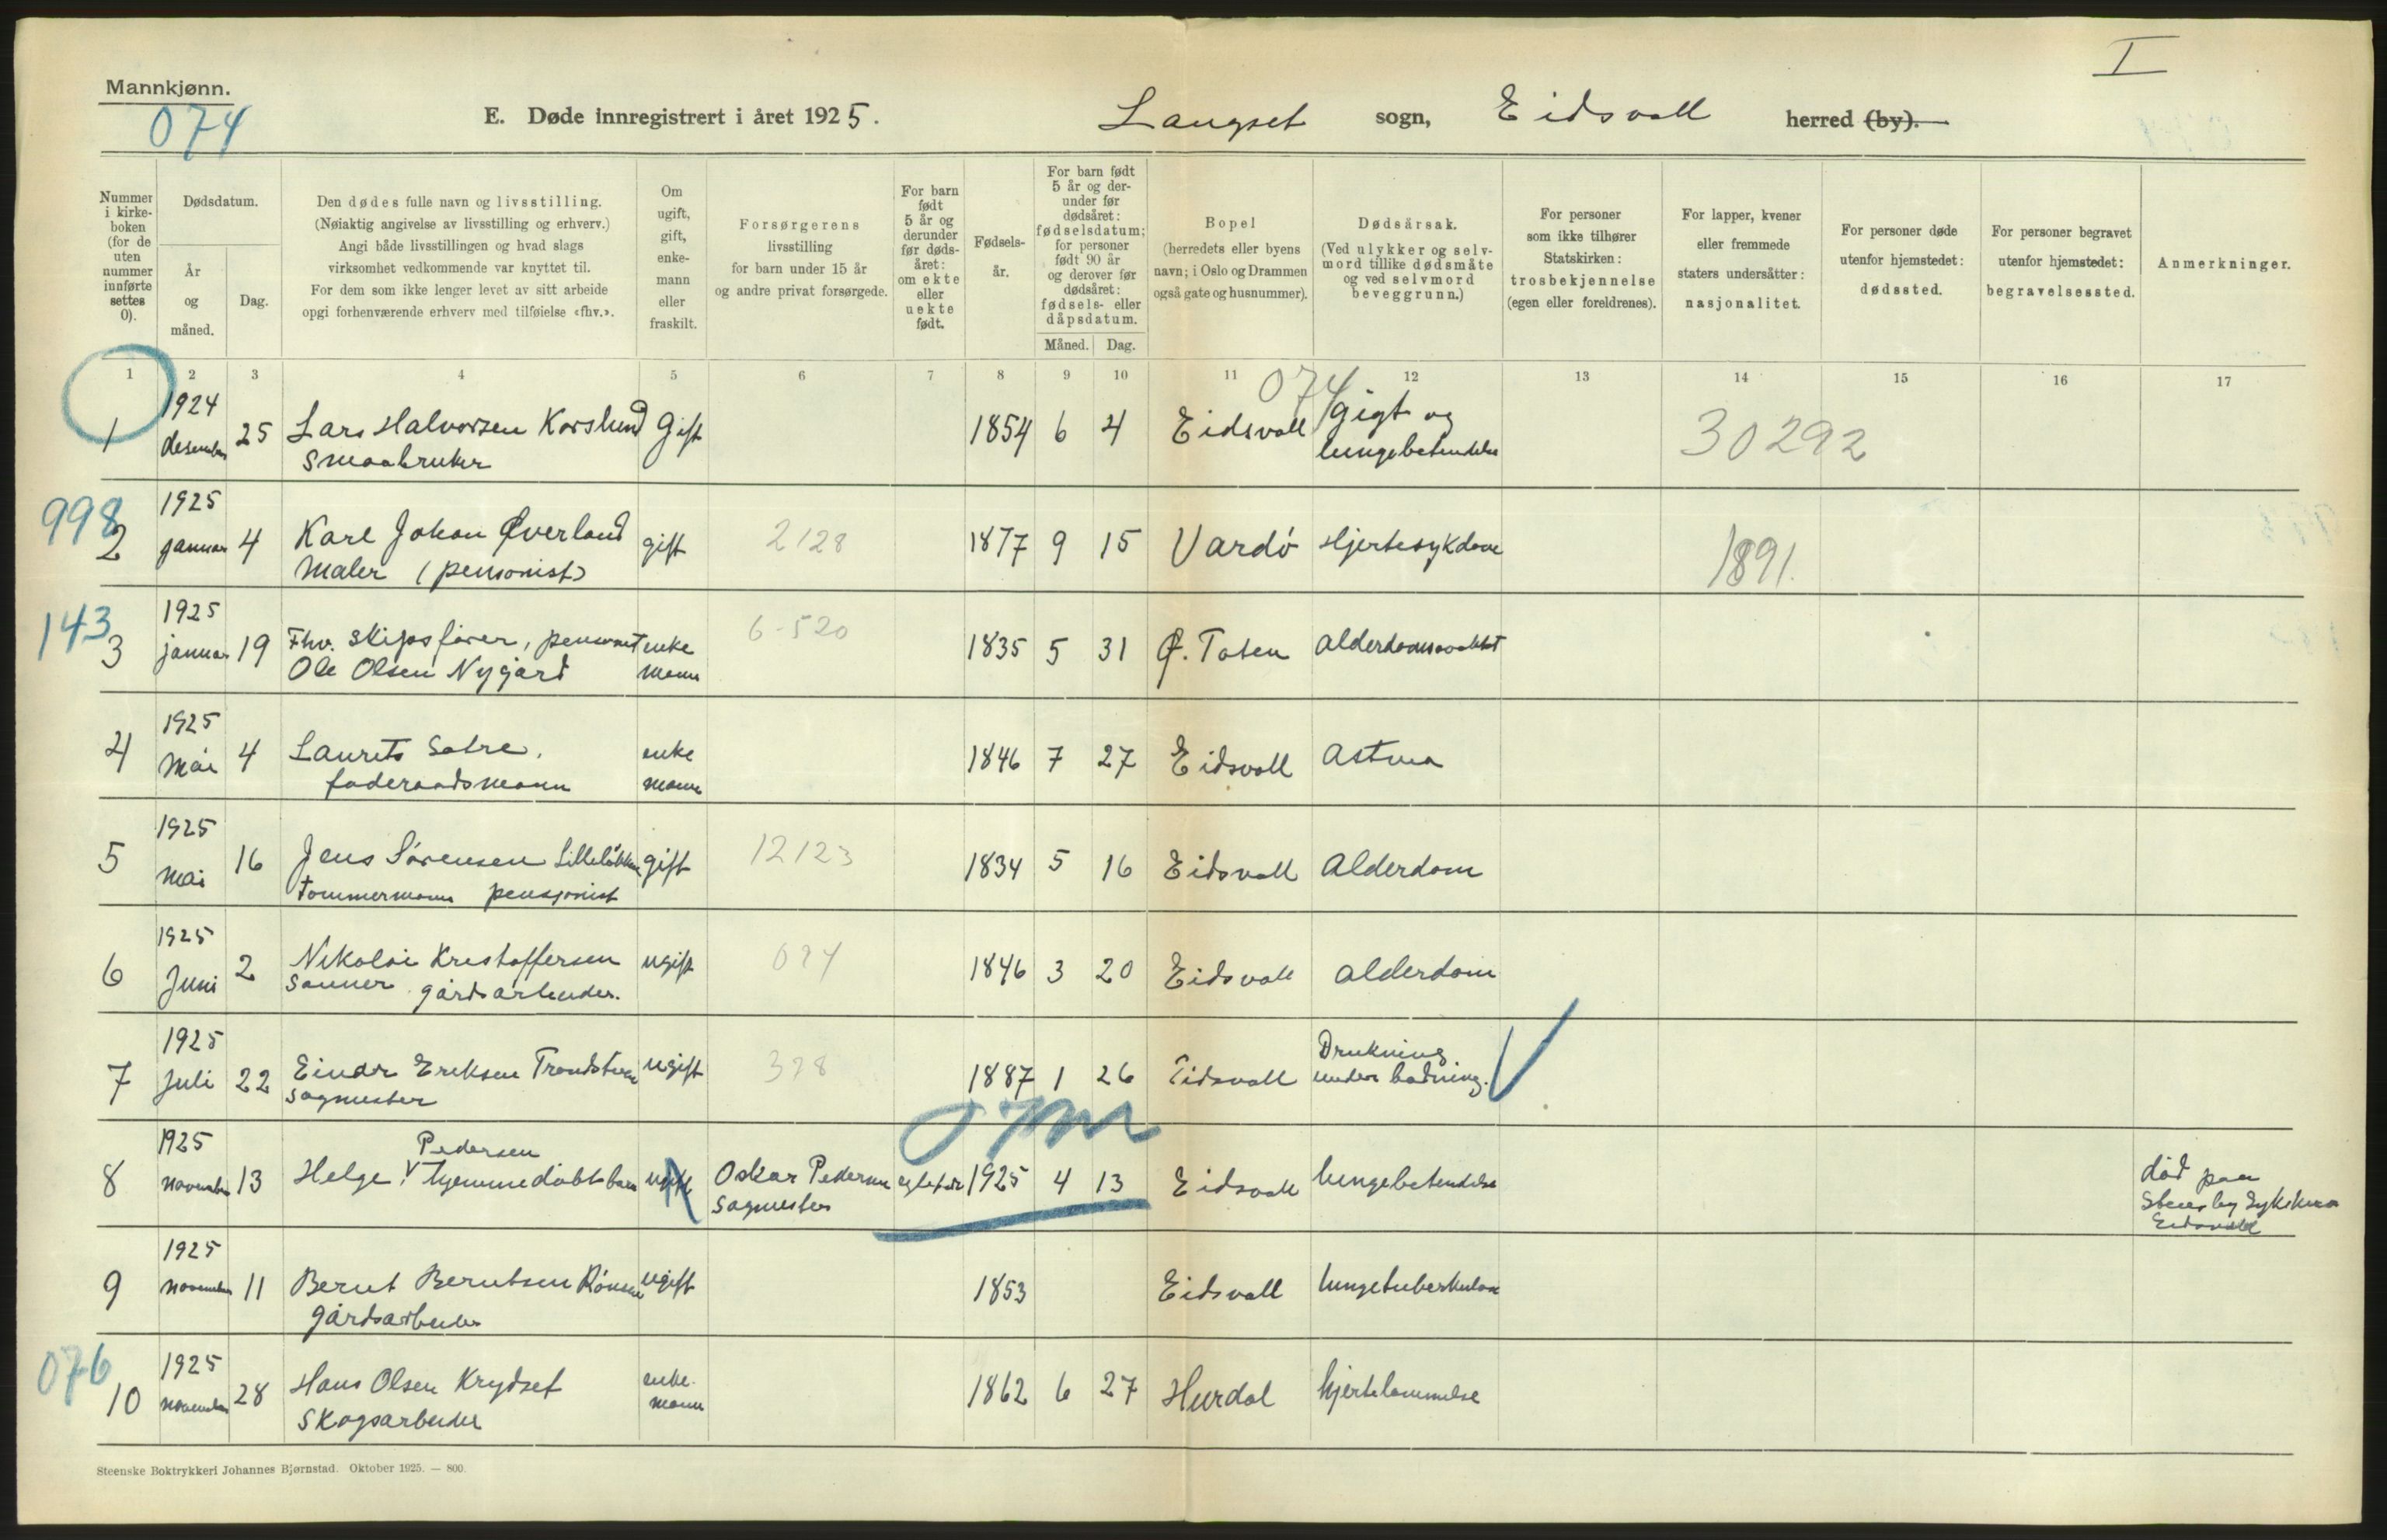 I
Mannkjønn.
074
E. Døde innregistrert i året 1925. Langset sogn, Eidsvoll herred (by).
Nummer i kirke-boken (for de uten nummer innførte settes 0).
Dødsdatum.
År og måned.
Dag.
Den dødes fulle navn og livsstilling.
(Nøiaktig angivelse av livsstilling og erhverv.)
Angi både livsstillingen og hvad slags
virksomhet vedkommende var knyttet til.
For dem som ikke lenger levet av sitt arbeide
opgi forhenværende erhverv med tilføielse «fhv.».
Om ugift, gift, enke-mann eller fraskilt.
Forsørgerens
livsstilling
for barn under 15 år
og andre privat forsørgede.
For barn født 5 år og derunder før døds-året: om ekte eller uekte født.
Fødsels-år.
For barn født 5 år og der-under før dødsåret: fødselsdatum; for personer født 90 år og derover før dødsåret: fødsels- eller dåpsdatum.
Måned. Dag.
Bopel
(herredets eller byens
navn; i Oslo og Drammen
også gate og husnummer).
Dødsårsak.
(Ved ulykker og selv-
mord tillike dødsmåte
og ved selvmord
beveggrunn.)
For personer
som ikke tilhører
Statskirken:
trosbekjennelse
(egen eller foreldrenes).
For lapper, kvener
eller fremmede
staters undersåtter:
nasjonalitet.
For personer døde
utenfor hjemstedet:
dødssted.
For personer begravet
utenfor hjemstedet:
begravelsessted.
Anmerkninger.
1 2 3 4 5 6 7 8 9 10 11 12 13 14 15 16 17
074
1 1924 desember 25 Lars Halvorsen Korslund Gift 1854 6 4 Eidsvoll gigt og 30292
smaabruker lungebetendelse
998
2 1925 januar 4 Karl Johan Øverland gift 2128 1877 9 15 Vardö Hjertesykdom 1891.
Maler (pensionist)
143
3 1925 januar 19 Fhv. skipsfører, pensionist enke mann 6-520 1835 5 31 Ø. Toten
Ole Olsen Nygård
4 1925 Mai 4 Laurits Satre, enke mann 1846 7 27 Eidsvoll Astma
föderaadsmann
5 1925 Mai 16 Jens Sörensen gift 12123 1834 5 16 Eidsvoll Alderdom
tømmermann pensjonist
6 1925 Juni 2 Nikolai Kristoffersen ugift 074 1846 3 20 Eidsvoll alderdom
Sanner gårdsarbeider.
7 1925 Juli 22 Einar Eriksen ugift 328 1887 1 26 Eidsvoll Drukning
sagmester under badning.
Pedersen
8 1925 november 13 Helge hjemmedöbt barn ugift Oskar Pedersen 1925 4 13 Eidsvoll lungebetendelse död paa
sagmester Stensby Sykehus
Eidsvoll
9 1925 november 11 Bernt Berntsen ugift 1853 Eidsvoll lungetuberkulose
gårdsarbeider
076
10 1925 november 28 Hans Olsen Krydset enke-mann 1862 6 27 Hurdal hjertelammelse
Skogsarbeider
Steenske Boktrykkeri Johannes Bjørnstad. Oktober 1925. — 800.